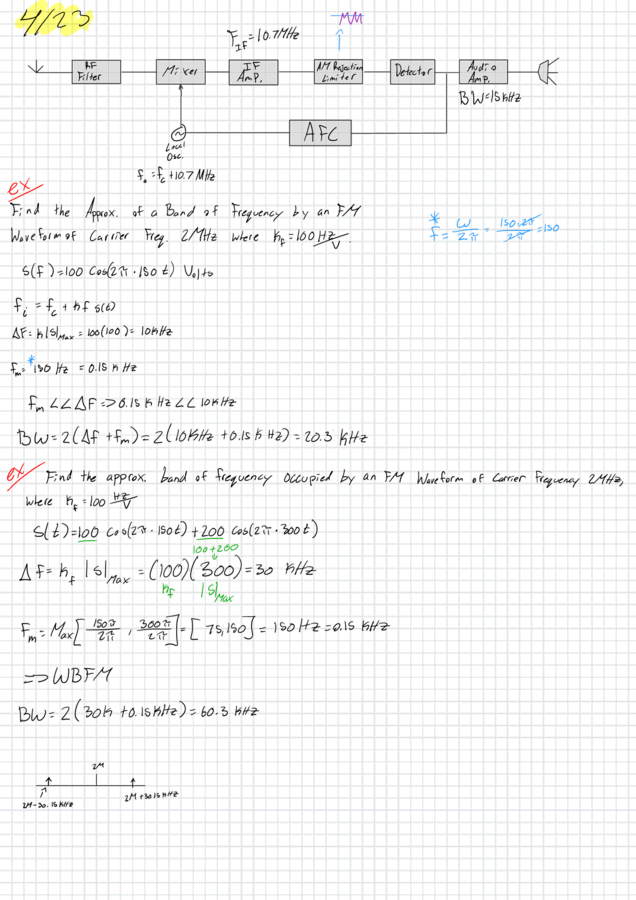 4/23
F_IF = 10.7MHz
RF Filter
Mixer
IF Amp.
AM Rejection Limiter
Detector
Audio Amp.
BW=15KHz
AFC
Local Osc.
f_o = f_c + 10.7 MHz
ex
Find the Approx. of a Band of Frequency by an FM
Waveform of Carrier Freq. 2MHz where K_f = 100 Hz/V.
* f = ω/2π = 150·2π/2π = 150
S(f) = 100 Cos(2π · 150 t) Volts
f_i = f_c + Kf s(t)
ΔF = K|S|Max = 100(100) = 10KHz
f_m = *150 Hz = 0.15 K Hz
f_m << ΔF => 0.15 K Hz << 10KHz
BW = 2(Δf + f_m) = 2(10KHz + 0.15 KHz) = 20.3 KHz
ex Find the approx. band of frequency occupied by an FM Waveform of Carrier Frequency 2MHz,
where K_f = 100 Hz/V
S(t) = 100 cos(2π · 150t) + 200 cos(2π · 300t)
100+200
Δf = K_f |S|Max = (100)(300) = 30 KHz
K_f |S|Max
F_m = Max[150π/2π , 300π/2π] = [75,150] = 150 Hz = 0.15 KHz
=> WBFM
BW = 2(30K + 0.15KHz) = 60.3 KHz
2M
2M-30.15KHz
2M+30.15KHz